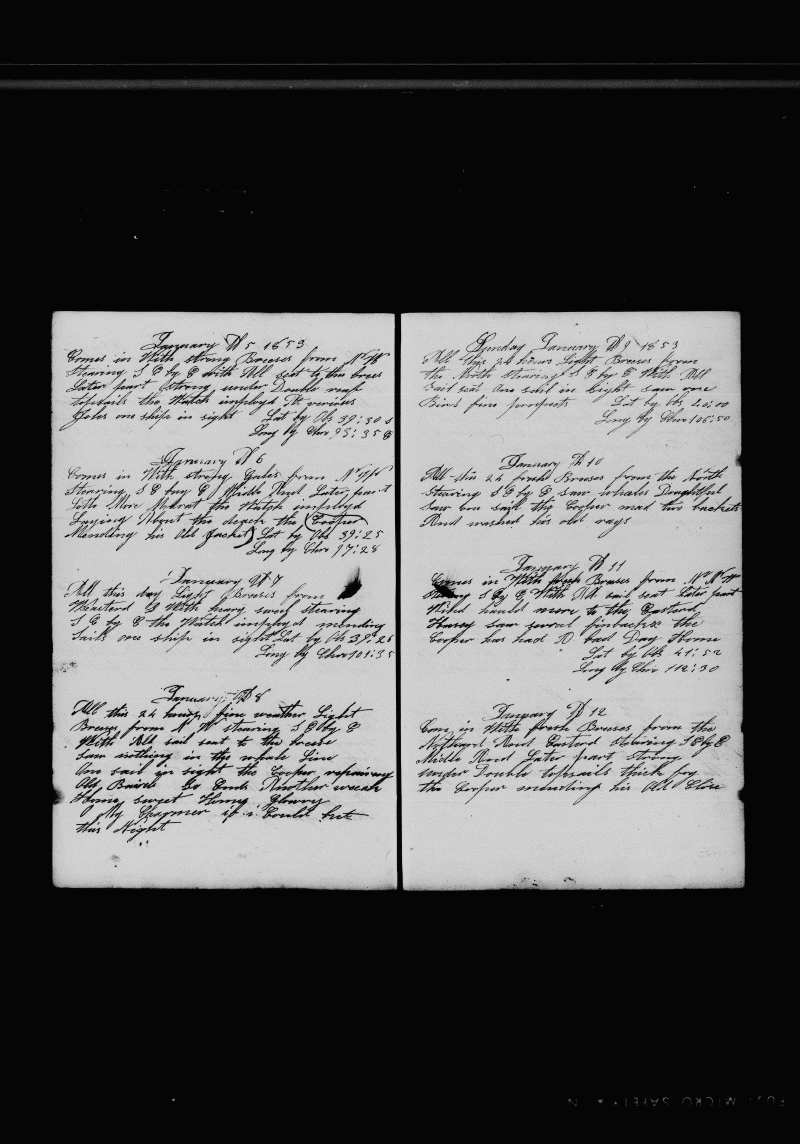 January th 5 1853
Comes in With strong Breeses from N W
Stearing S E by E with All seat to the brees
Later part Strong under Double reaf
topsails the Watch imployd At verious
Jobes one ship in sight Lat by Obs 39:30 S
Long by Chor 93:35 E
January th 6
Comes in With strong Gales from
Stearing S E buy E Middle And Later part
Little More Modrat the Watch imployd
Laying About the deack the Cooper
Mending his Old Jacket Lat by Obs 39:25
Long by Chor 97:28
January th 7
All this day Light Breeses from
Weasterd With heavy swell stearing
S E by E the Watch imployd mending
Sails one ship in sight Lat by Obs 39:25
Long by Chor 101:35
January th 8
All this 24 hours fine weather Light
Breeses from N W stearing S E by E
With All sail seat to the breese
Saw nothing in the whale Line
One sail in sight the Cooper repairing
Old Another weeak
Home sweet Home
O My if i Could but
this Night
Sunday January th 9 1853
All this 24 hours Light Breeses from
the North stearing S E by E With All
Sail seat One sail in Sight saw one
fine prospects Lat by Obs 40:00
Long by Chor 106:50
January th 10
All this 24 fresh Breeses from the North
Stearing S E by E saw whales Doughtfull
Saw one sail the Cooper mad two buckets
And washed his old rags
January th 11
Comes in With fresh Breses from N N W
Stearing S E by E With All sail seat Later part
Wind hauld more to the Eastard
saw sevral finbacks the
Cooper has had A bad Day Home
Lat by Obs 41:52
Long by Chor 112:30
January th 12
Com in With fresh Breeses from the
Northard And Eastard stearing S E by E
Middle And Later part strong
under Double topsails thick fog
the Cooper mending his Old
FUJI MICRO SAFETY